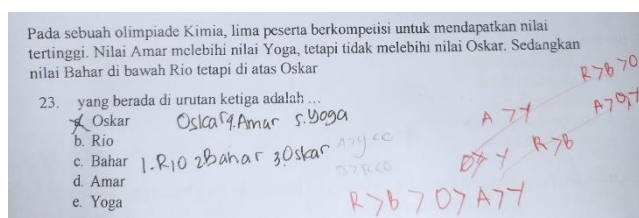 Pada sebuah olimpiade Kimia, lima peserta berkompetisi untuk mendapatkan nilai
tertinggi. Nilai Amar melebihi nilai Yoga, tetapi tidak melebihi nilai Oskar. Sedangkan
nilai Bahar di bawah Rio tetapi di atas Oskar
R>B>O
23. yang berada di urutan ketiga adalah ...
a. Oskar
Oskar 4. Amar 5. Yoga
A>Y
b. Rio
R>B
c. Bahar
1. Rio 2 Bahar 3 Oskar
d. Amar
e. Yoga
R>b>O>A>Y